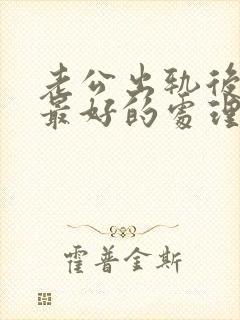 老公出轨後
最好的處理
霍普金斯